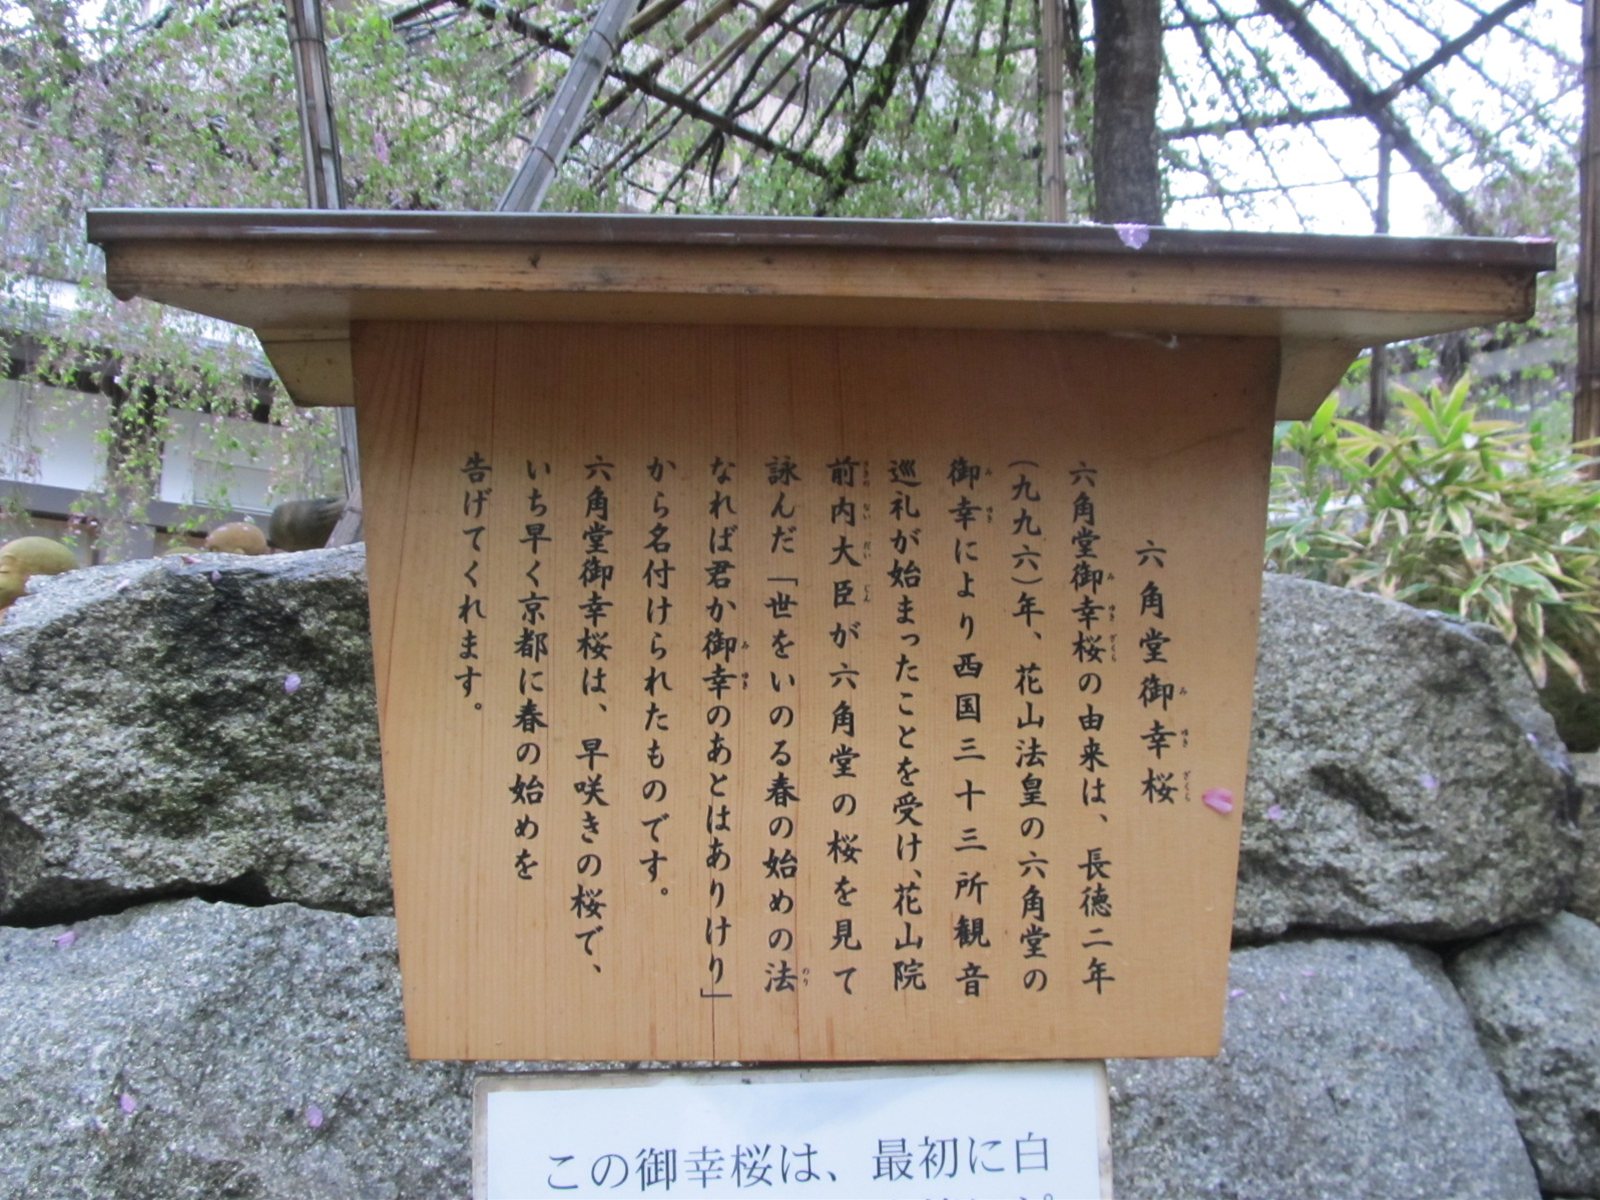 六角堂御幸桜
六角堂御幸桜の由来は、長徳二年
(九九六)年、花山法皇の六角堂の
御幸により西国三十三所観音
巡礼が始まったことを受け、花山院
前内大臣が六角堂の桜を見て
詠んだ「世をいのる春の始めの法
なれば君か御幸のあとはありけり」
から名付けられたものです。
六角堂御幸桜は、早咲きの桜で、
いち早く京都に春の始めを
告げてくれます。
この御幸桜は、最初に白